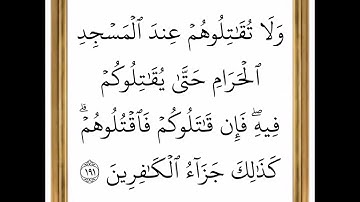 وَلَا تُقَٰتِلُوهُمۡ عِندَ ٱلۡمَسۡجِدِ
ٱلۡحَرَامِ حَتَّىٰ يُقَٰتِلُوكُمۡ
فِيهِۖ فَإِن قَٰتَلُوكُمۡ فَٱقۡتُلُوهُمۡۗ
كَذَٰلِكَ جَزَآءُ ٱلۡكَٰفِرِينَ ١٩١